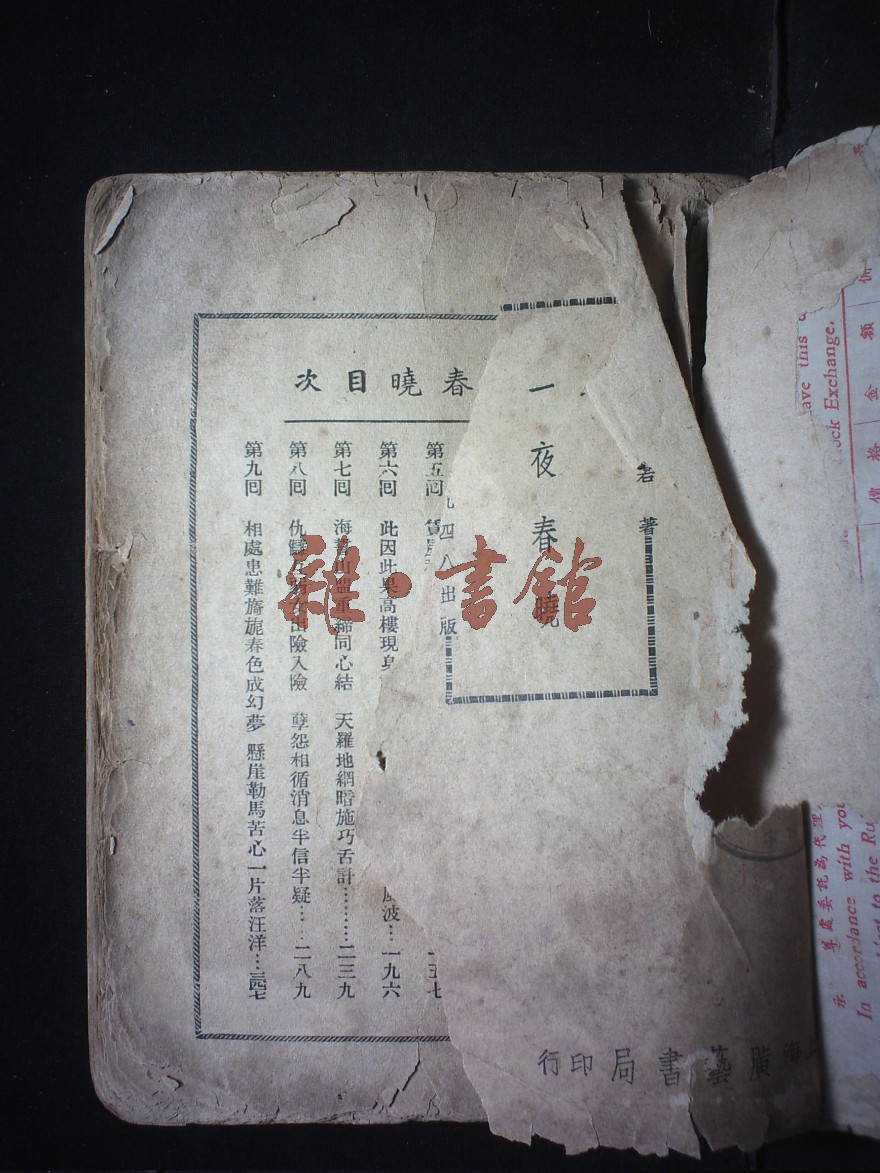 一夜春曉
著
九四八出版
海廣藝書局印行
春曉目次
第五回
五七
第六回 此因此果高樓現身
風波…一九六
第七回 海誓山盟重締同心結 天羅地網暗施巧舌計………二三九
第八回 仇讎 出險入險 孽怨相循消息半信半疑……二八九
第九回 相處患難旖旎春色成幻夢 懸崖勒馬苦心一片落汪洋…三四七
雜·書館
ave this
ock Exchange.
價 格 金 額
尊處委託為代理
In accordance with you
to the Ru